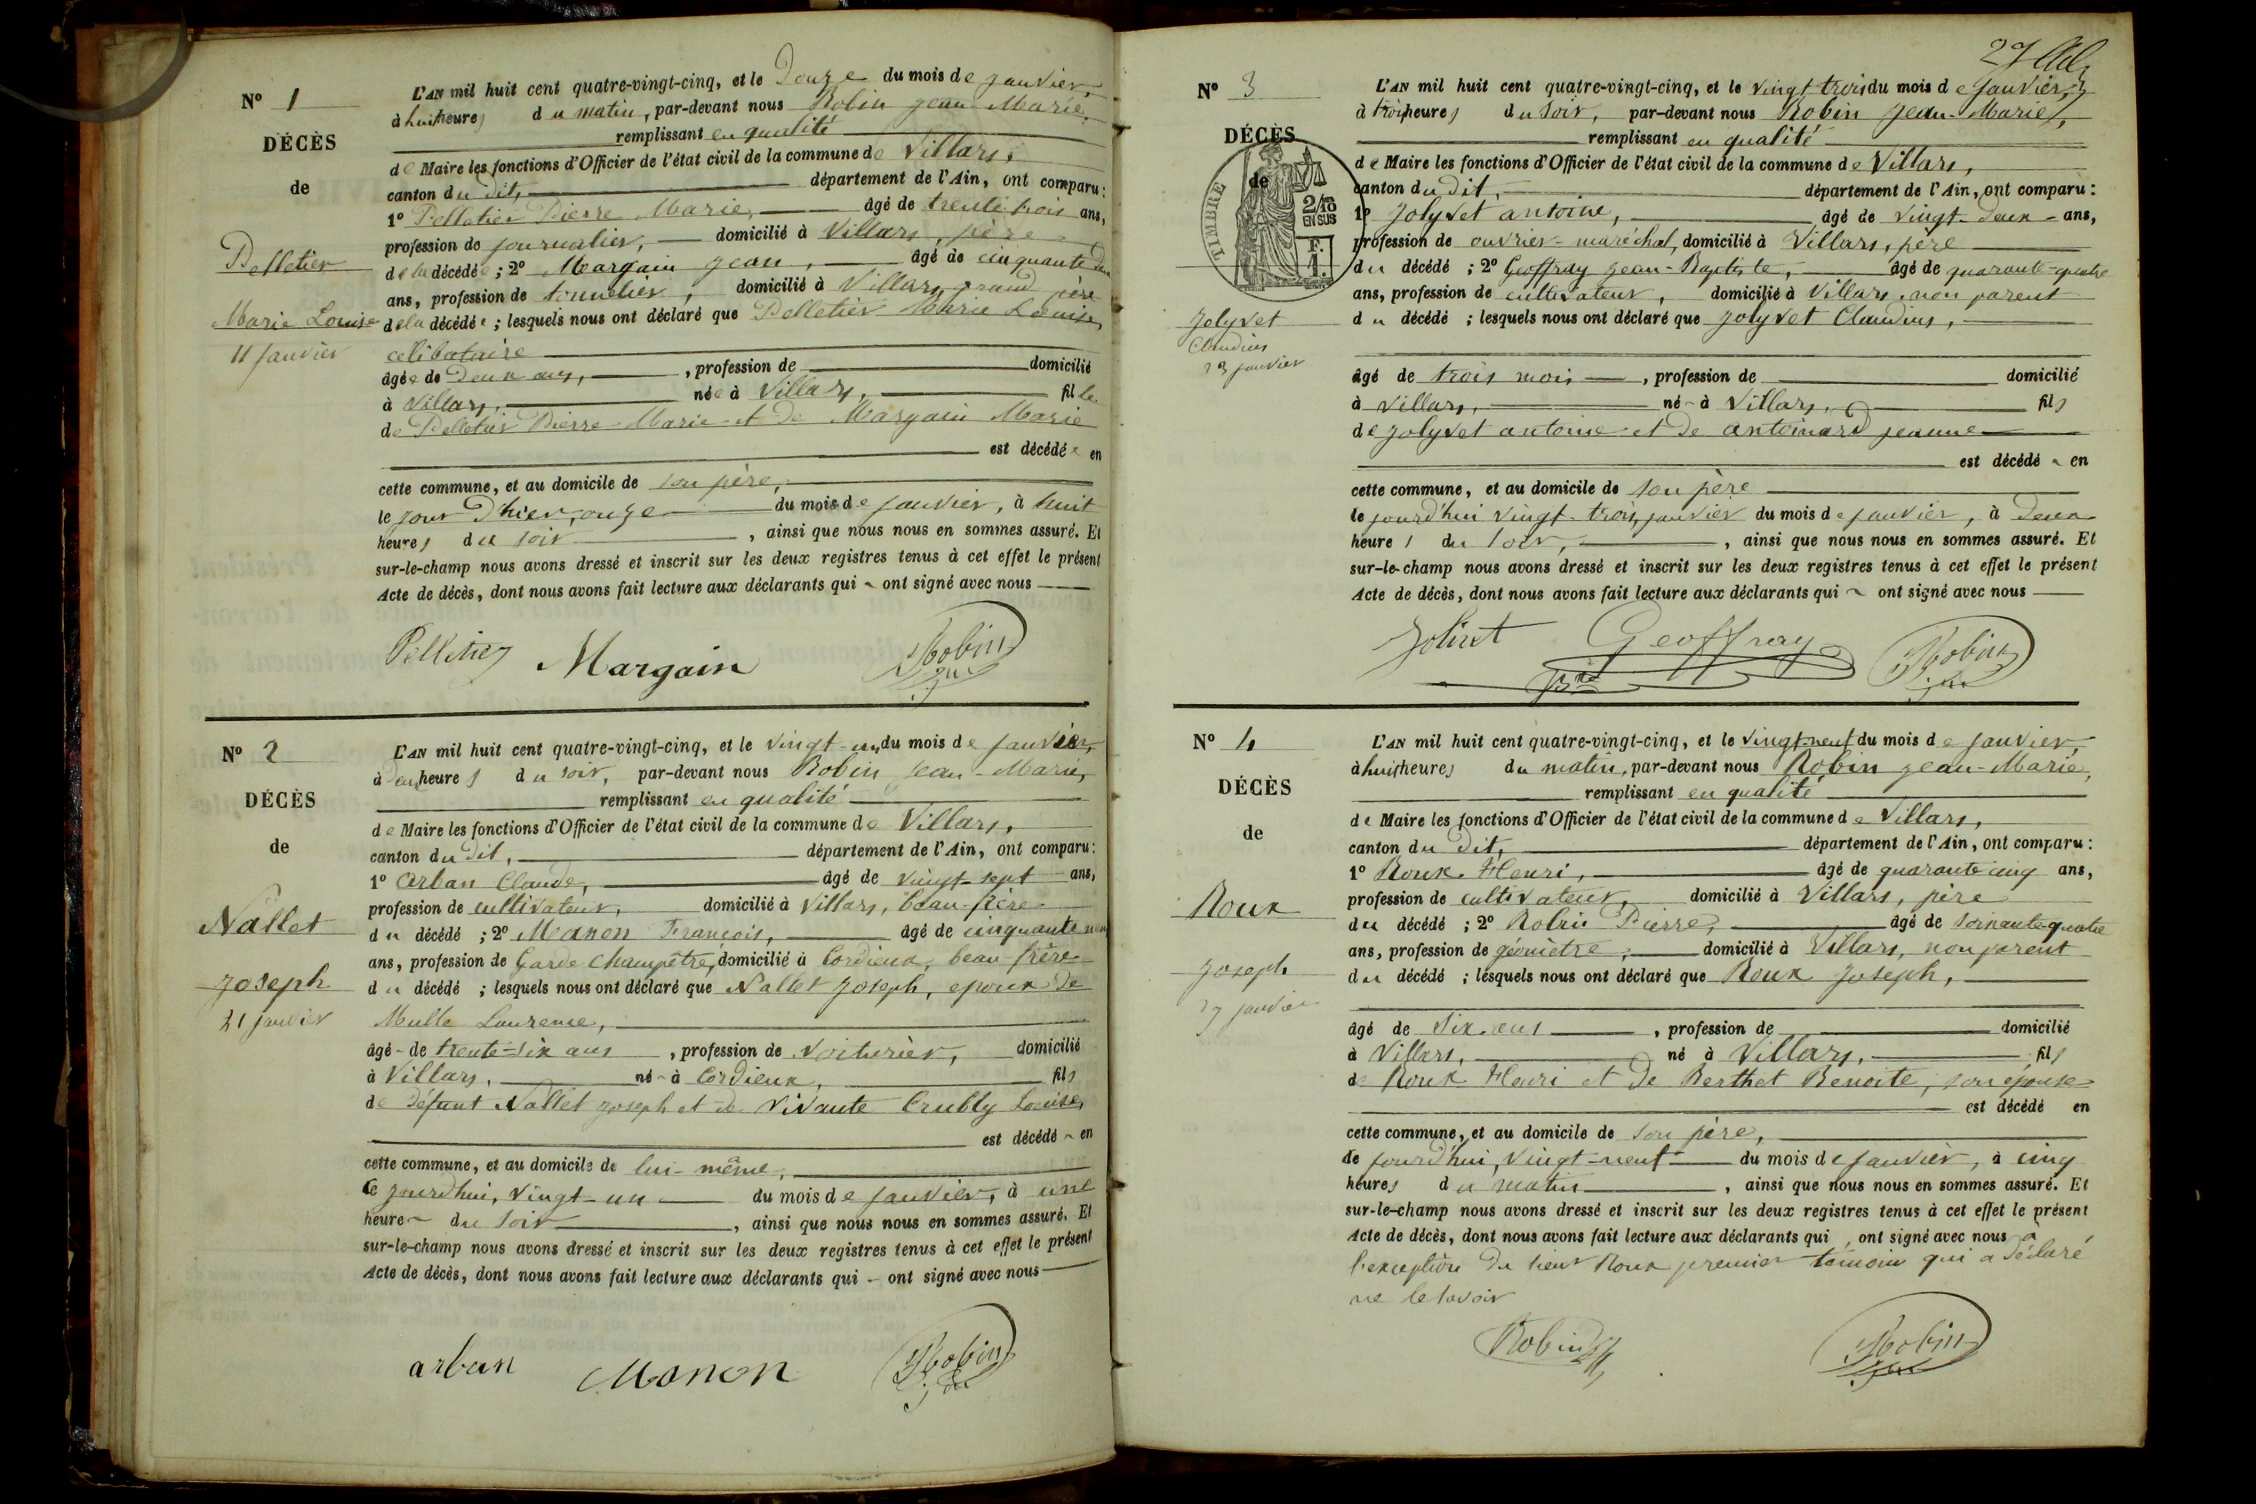 Nº 1
DÉCÈS
de
Pelletier
Marie Louise
11 janvier
L'AN mil huit cent quatre-vingt-cinq, et le Douze du mois de janvier,
à huit heures du matin, par-devant nous Robin Jean-Marie,
remplissant en qualité
de Maire les fonctions d'Officier de l'état civil de la commune de Villars,
canton du dit, département de l'Ain, ont comparu :
1º Pelletier Pierre Marie, âgé de trente trois ans,
profession de journalier, domicilié à Villars, père
de la décédée ; 2º Margain Jean, âgé de cinquante
ans, profession de tonnelier, domicilié à Villars, grand père
de la décédée ; lesquels nous ont déclaré que Pelletier Marie Louise,
celibataire
âgée de Deux ans, , profession de domicilié
à Villars, née à Villars, fille
de Pelletier Pierre-Marie et de Margain Marie
est décédée en
cette commune, et au domicile de son père,
le jour d'hier, onze du mois de janvier, à huit
heures du soir , ainsi que nous nous en sommes assuré. Et
sur-le-champ nous avons dressé et inscrit sur les deux registres tenus à cet effet le présent
Acte de décès, dont nous avons fait lecture aux déclarants qui ont signé avec nous
Pelletier Margain Robin
Nº 2
DÉCÈS
de
Nallet
Joseph
21 janvier
L'AN mil huit cent quatre-vingt-cinq, et le vingt-un du mois de janvier,
à heures du soir, par-devant nous Robin Jean-Marie,
remplissant en qualité
de Maire les fonctions d'Officier de l'état civil de la commune de Villars,
canton du dit, département de l'Ain, ont comparu :
1º Arban Claude, âgé de vingt-sept ans,
profession de cultivateur, domicilié à Villars, beau-frère
du décédé ; 2º Manon François, âgé de cinquante
ans, profession de Garde Champêtre, domicilié à Cordieux, beau frère
du décédé ; lesquels nous ont déclaré que Nallet Joseph, epoux de
Mulle Laurence,
âgé de trente-six ans , profession de Voiturier, domicilié
à Villars, né à Cordieux, fils
de défunt Nallet Joseph et de vivante Louise,
est décédé en
cette commune, et au domicile de lui-même,
le jourd'hui, vingt-un du mois de janvier, à une
heure du soir , ainsi que nous nous en sommes assuré. Et
sur-le-champ nous avons dressé et inscrit sur les deux registres tenus à cet effet le présent
Acte de décès, dont nous avons fait lecture aux déclarants qui ont signé avec nous
arban Manon Robin
Nº 3
DÉCÈS
de
TIMBRE
2/10
EN SUS
F.
1.
Jolyvet
Claudius
23 janvier
L'AN mil huit cent quatre-vingt-cinq, et le vingt trois du mois de janvier,
à trois heures du soir, par-devant nous Robin Jean-Marie,
remplissant en qualité
de Maire les fonctions d'Officier de l'état civil de la commune de Villars,
canton du dit, département de l'Ain, ont comparu :
1º Jolyvet antoine, âgé de vingt-deux ans,
profession de ouvrier-maréchal, domicilié à Villars, père
du décédé ; 2º Geoffray Jean-Baptiste, âgé de quarante-quatre
ans, profession de cultivateur, domicilié à Villars, non parent
du décédé ; lesquels nous ont déclaré que Jolyvet Claudius,
âgé de trois mois , profession de domicilié
à Villars, né à Villars, fils
de Jolyvet antoine et de antoinard jeanne
est décédé en
cette commune, et au domicile de son père
le jourd'hui vingt-trois janvier du mois de janvier, à Deux
heures du soir, , ainsi que nous nous en sommes assuré. Et
sur-le-champ nous avons dressé et inscrit sur les deux registres tenus à cet effet le présent
Acte de décès, dont nous avons fait lecture aux déclarants qui ont signé avec nous
Geoffray Robin
Nº 4
DÉCÈS
de
Roux
Joseph
L'AN mil huit cent quatre-vingt-cinq, et le vingt-neuf du mois de janvier,
à huit heures du matin, par-devant nous Robin Jean-Marie,
remplissant en qualité
de Maire les fonctions d'Officier de l'état civil de la commune de Villars,
canton du dit, département de l'Ain, ont comparu :
1º Roux Henri, âgé de quarante cinq ans,
profession de cultivateur, domicilié à Villars, père
du décédé ; 2º Robin Pierre, âgé de soixante-quatre
ans, profession de géomètre, domicilié à Villars, non parent
du décédé ; lesquels nous ont déclaré que Roux Joseph,
âgé de Six ans , profession de domicilié
à Villars, né à Villars, fils
de Roux Henri et de Berthet Benoite, son épouse
est décédé en
cette commune, et au domicile de son père,
le jourd'hui, vingt-neuf du mois de janvier, à cinq
heures du matin , ainsi que nous nous en sommes assuré. Et
sur-le-champ nous avons dressé et inscrit sur les deux registres tenus à cet effet le présent
Acte de décès, dont nous avons fait lecture aux déclarants qui ont signé avec nous à
l'exception du sieur Roux premier témoin qui a déclaré
ne le savoir
Robin Robin